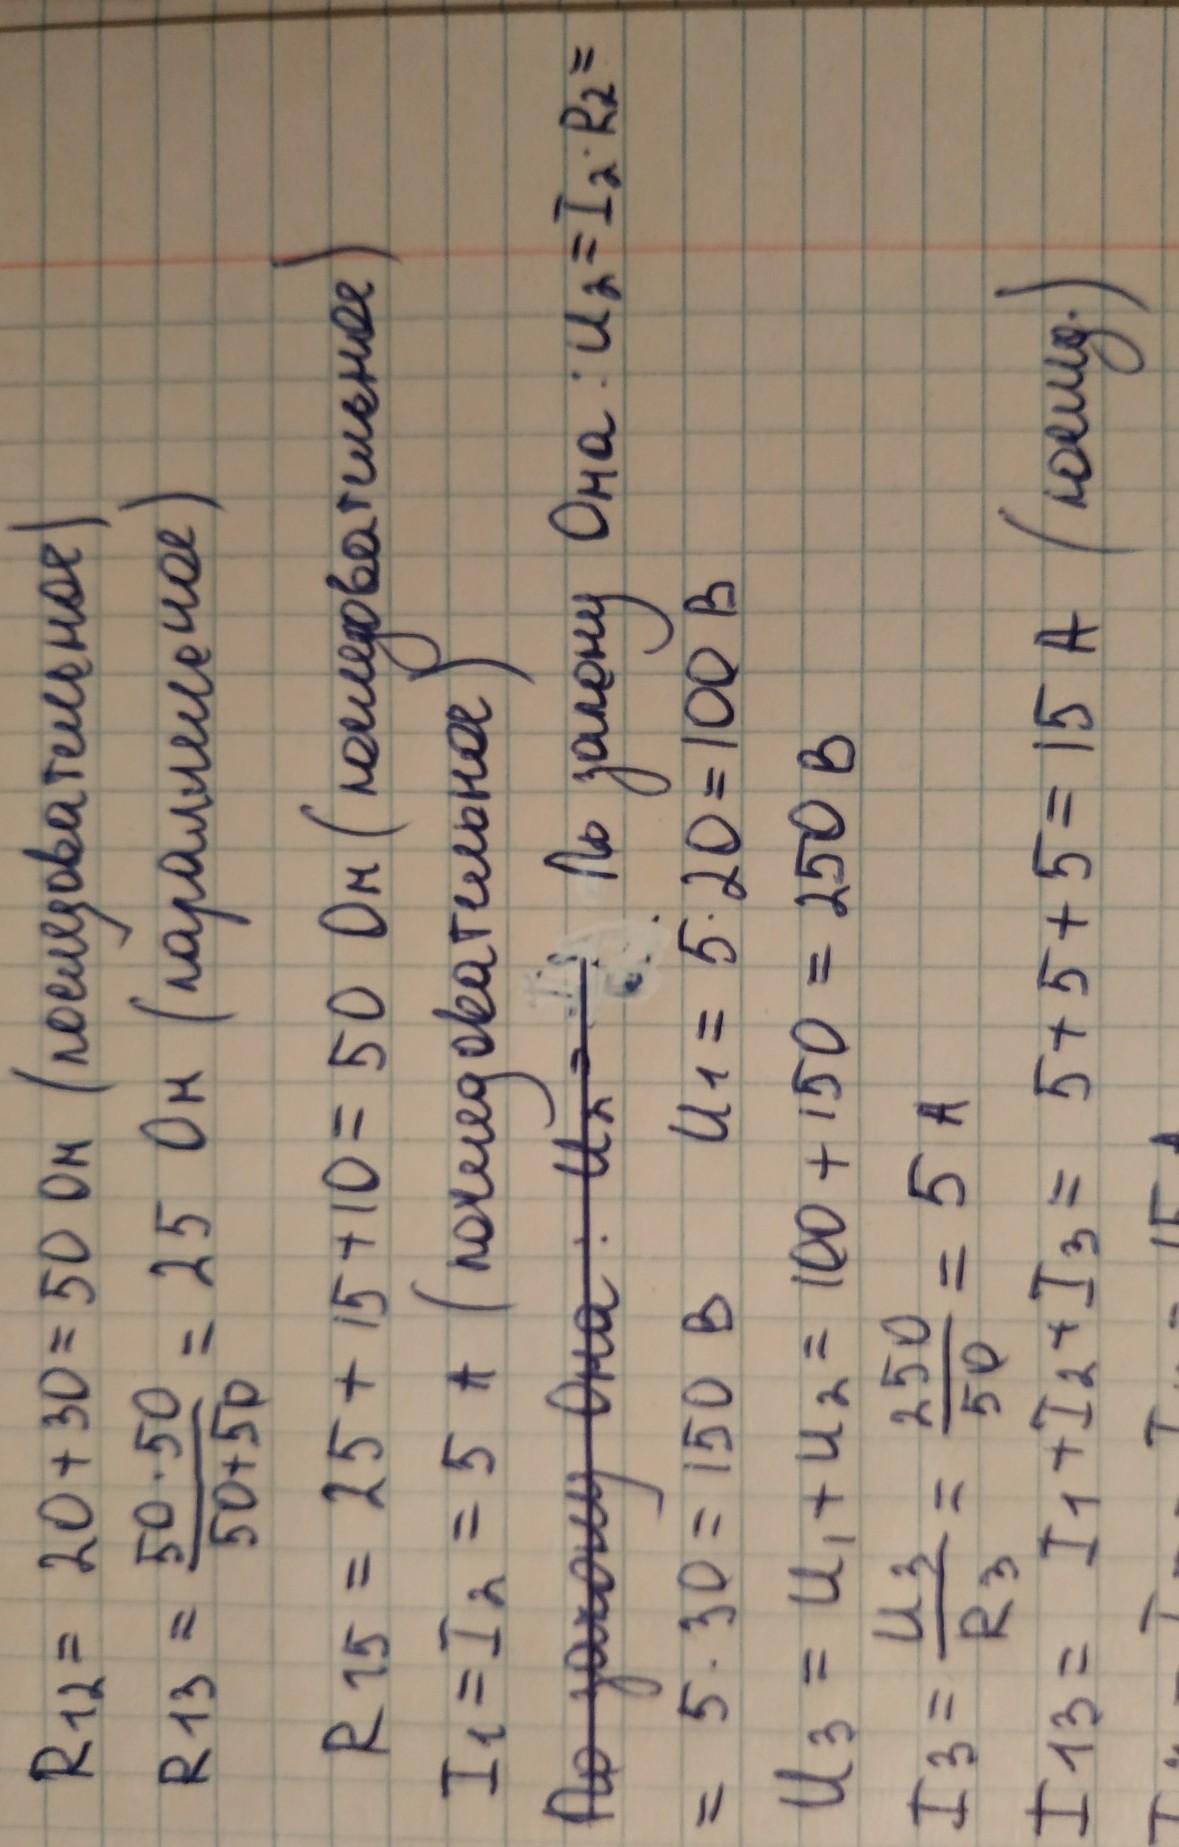 R12 = 20+30=50 Ом (последовательное)
R13 = 50·50/50+50 = 25 Ом (параллельное)
R15 = 25+15+10=50 Ом (последовательное)
I1=I2=5 А (последовательное)
По закону Ома: U2= По закону Ома: U2=I2·R2=
= 5·30=150 В U1= 5·20=100 В
U3= U1+U2=100+150=250 В
I3= U3/R3 = 250/50 = 5 А
I13= I1+I2+I3= 5+5+5=15 А (послед.)